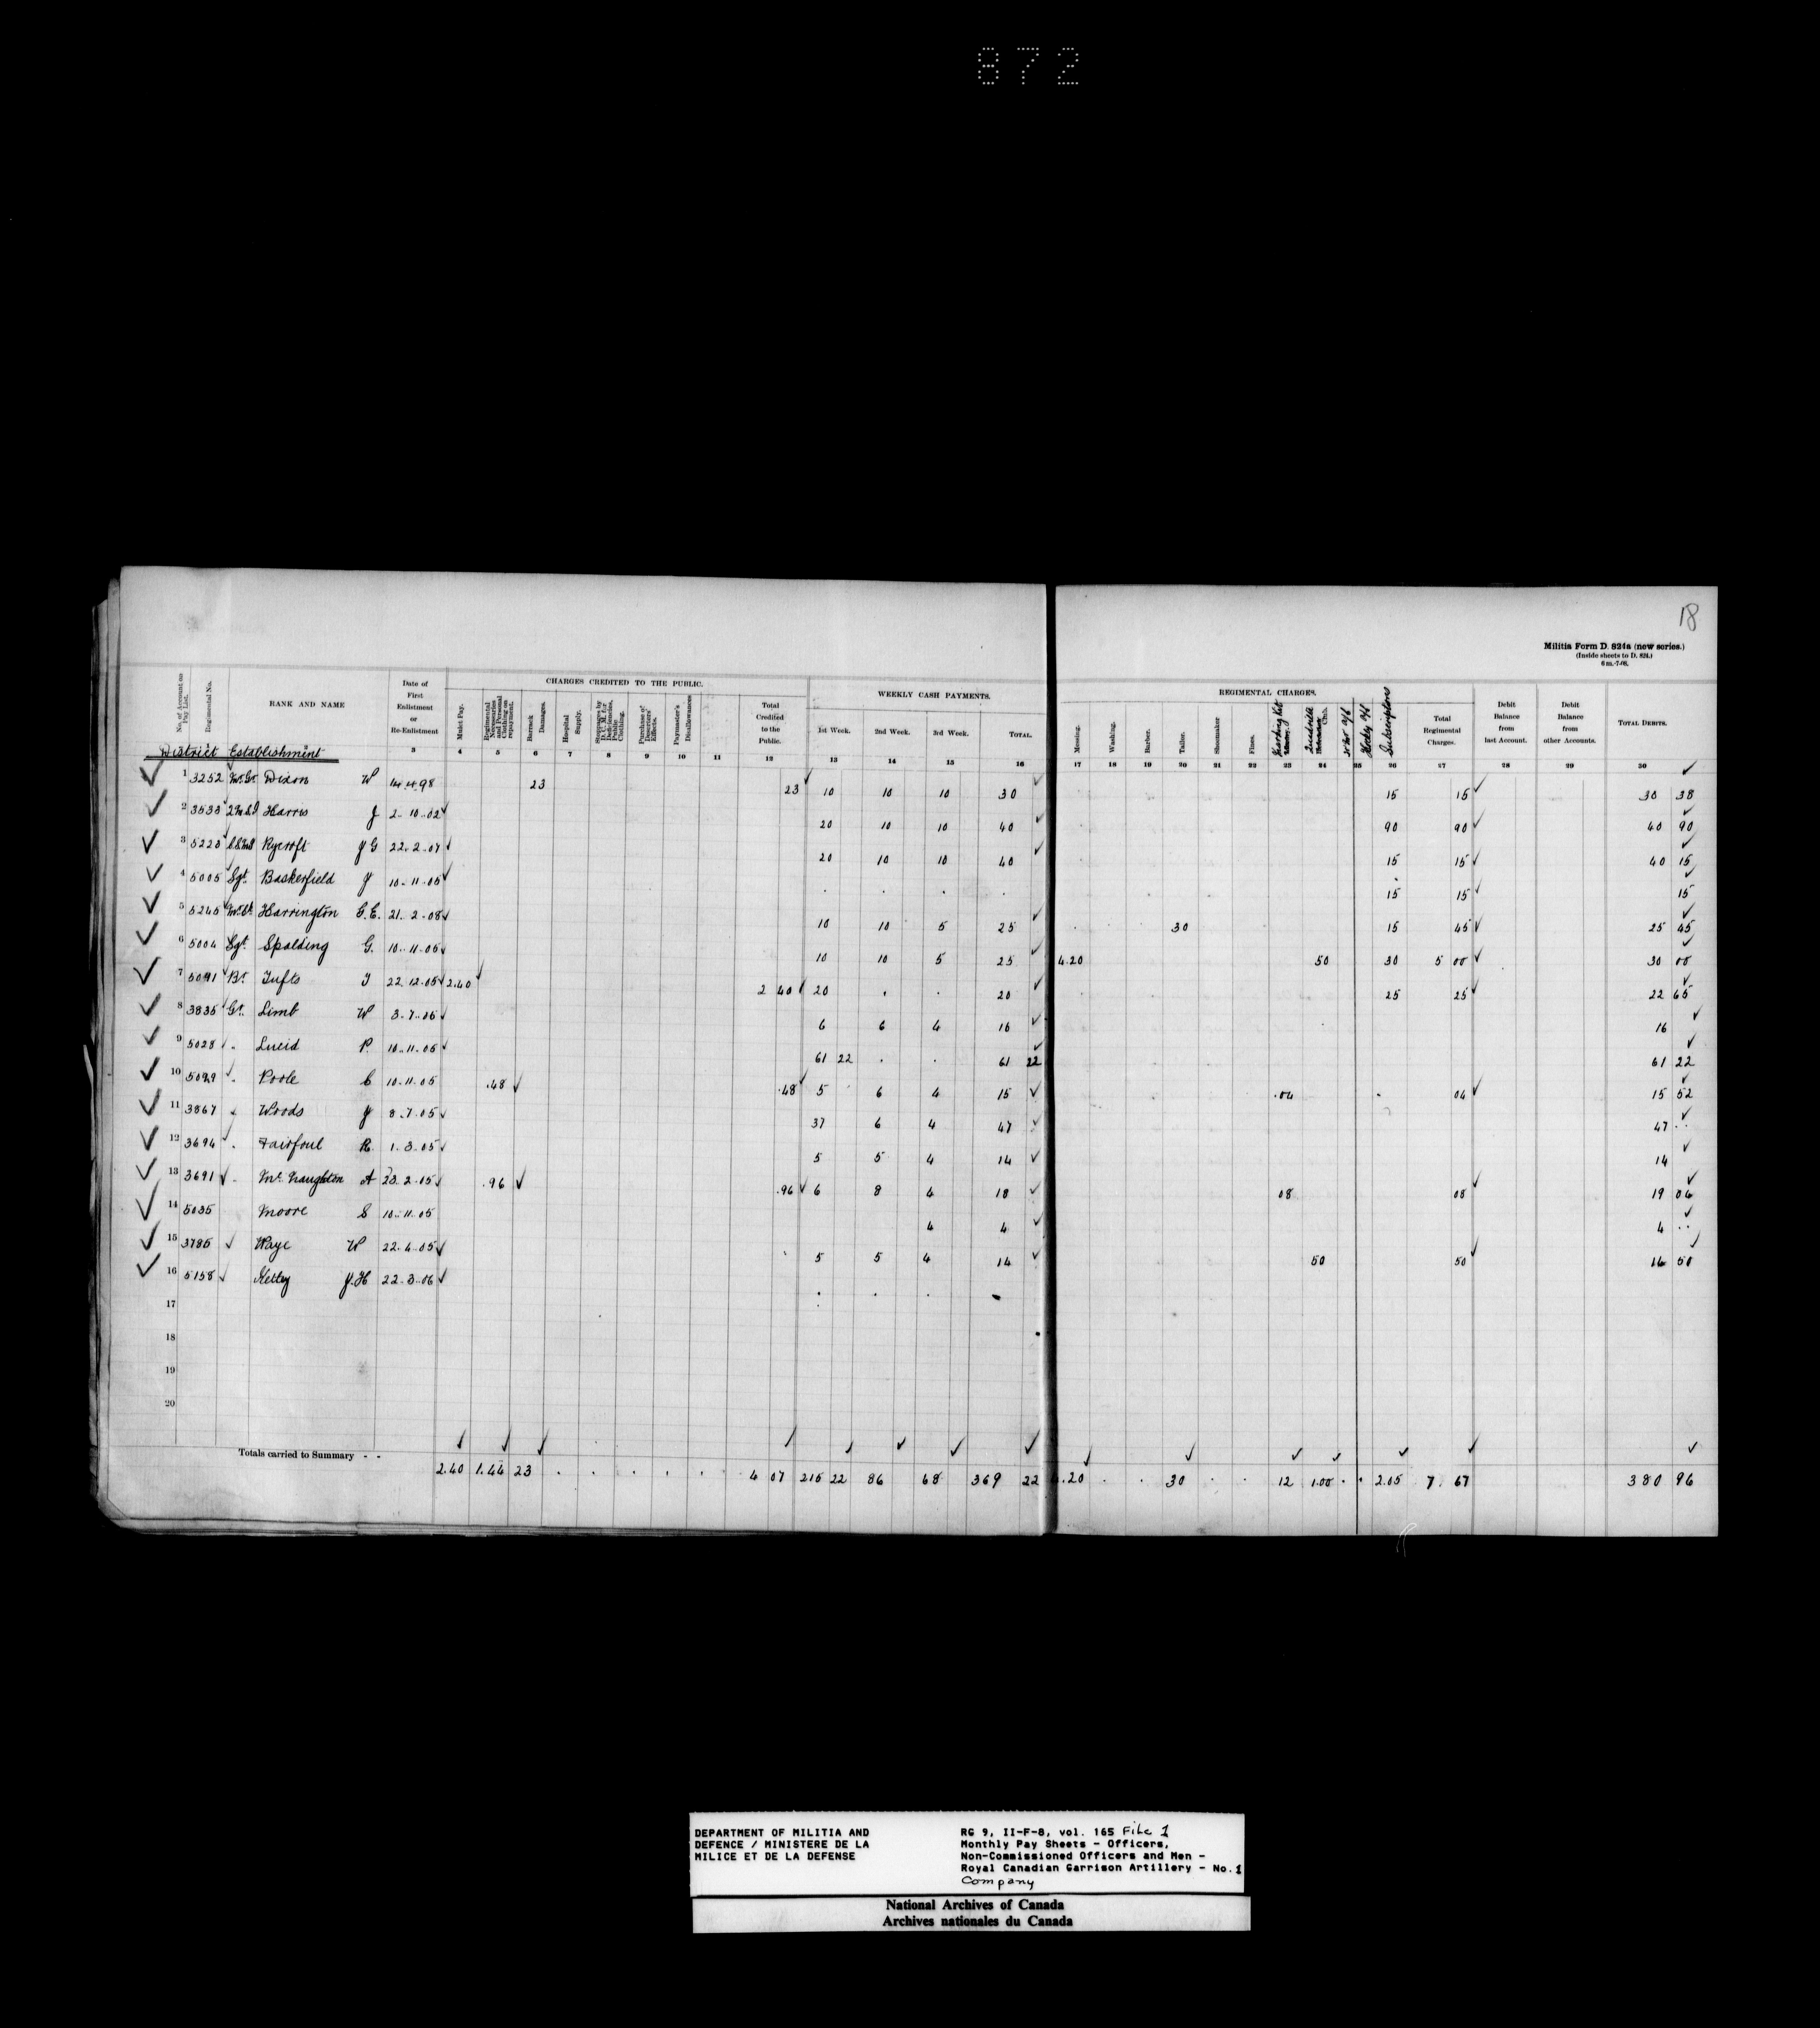 872
18
Militia Form D. 824a (new series.)
(Inside sheets to D. 824.)
6 m.-7-08.
No. of Account on Pay List.
Regimental No.
RANK AND NAME
Date of First Enlistment or Re-Enlistment
CHARGES CREDITED TO THE PUBLIC.
Mulct Pay.
Regimental Necessaries and Personal Clothing on repayment.
Barrack Damages.
Hospital Supply.
Purchase of Deserters' Effects.
Paymaster's Disallowances
Total Credited to the Public.
WEEKLY CASH PAYMENTS.
1st Week. 2nd Week. 3rd Week. TOTAL.
REGIMENTAL CHARGES.
Messing.
Washing.
Barber.
Tailor.
Shoemaker
Fines.
Marking Kit
Club.
Subscriptions
Total Regimental Charges.
Debit Balance from last Account.
Debit Balance from other Accounts.
TOTAL DEBITS.
3 4 5 6 7 8 9 10 11 12 13 14 15 16 17 18 19 20 21 22 23 24 25 26 27 28 29 30
District Establishment
1 3252 Dixon W 14.4.98 23 23 10 10 10 30 15 15 30 38
2 3533 Harris J 2.10.02 20 10 10 40 90 90 40 90
3 5223 Rycroft J G 22.2.07 20 10 10 40 15 15 40 15
4 5005 Sgt. Baskerfield J 10.11.05 . . . . 15 15 15
5 5245 Harrington C.E. 21.2.08 10 10 5 25 30 15 45 25 45
6 5004 Sgt. Spalding G. 10.11.05 10 10 5 25 4.20 50 30 5 00 30 00
7 5091 Br. Tufts J 22.12.05 2.40 2 40 20 . . 20 25 25 22 65
8 3835 Gr. Limb W 3.7.05 6 6 4 16 16
9 5028 " Lucid P. 10.11.05 61 22 . . 61 22 61 22
10 5099 " Poole C 10.11.05 .48 .48 5 6 4 15 .04 04 15 52
11 3867 " Woods J 8.7.05 37 6 4 47 47 ..
12 3694 " Fairfoul R. 1.3.05 5 5 4 14 14
13 3691 " McNaughton A 23.2.05 .96 .96 6 8 4 18 08 08 19 04
14 5035 Moore S 10.11.05 4 4 4 ..
15 3785 Waye W 22.4.05 5 5 4 14 50 50 14 50
16 5158 Kelley J.H 22.3.06 . . .
17
18
19
20
Totals carried to Summary - -
2.40 1.44 23 . . . . . 4 07 215 22 86 68 369 22 4.20 . . 30 . . 12 1.00 . . 2.05 7. 67 380 96
DEPARTMENT OF MILITIA AND
DEFENCE / MINISTERE DE LA
MILICE ET DE LA DEFENSE
RG 9, II-F-8, vol. 165 File 1
Monthly Pay Sheets - Officers,
Non-Commissioned Officers and Men -
Royal Canadian Garrison Artillery - No. 1
Company
National Archives of Canada
Archives nationales du Canada